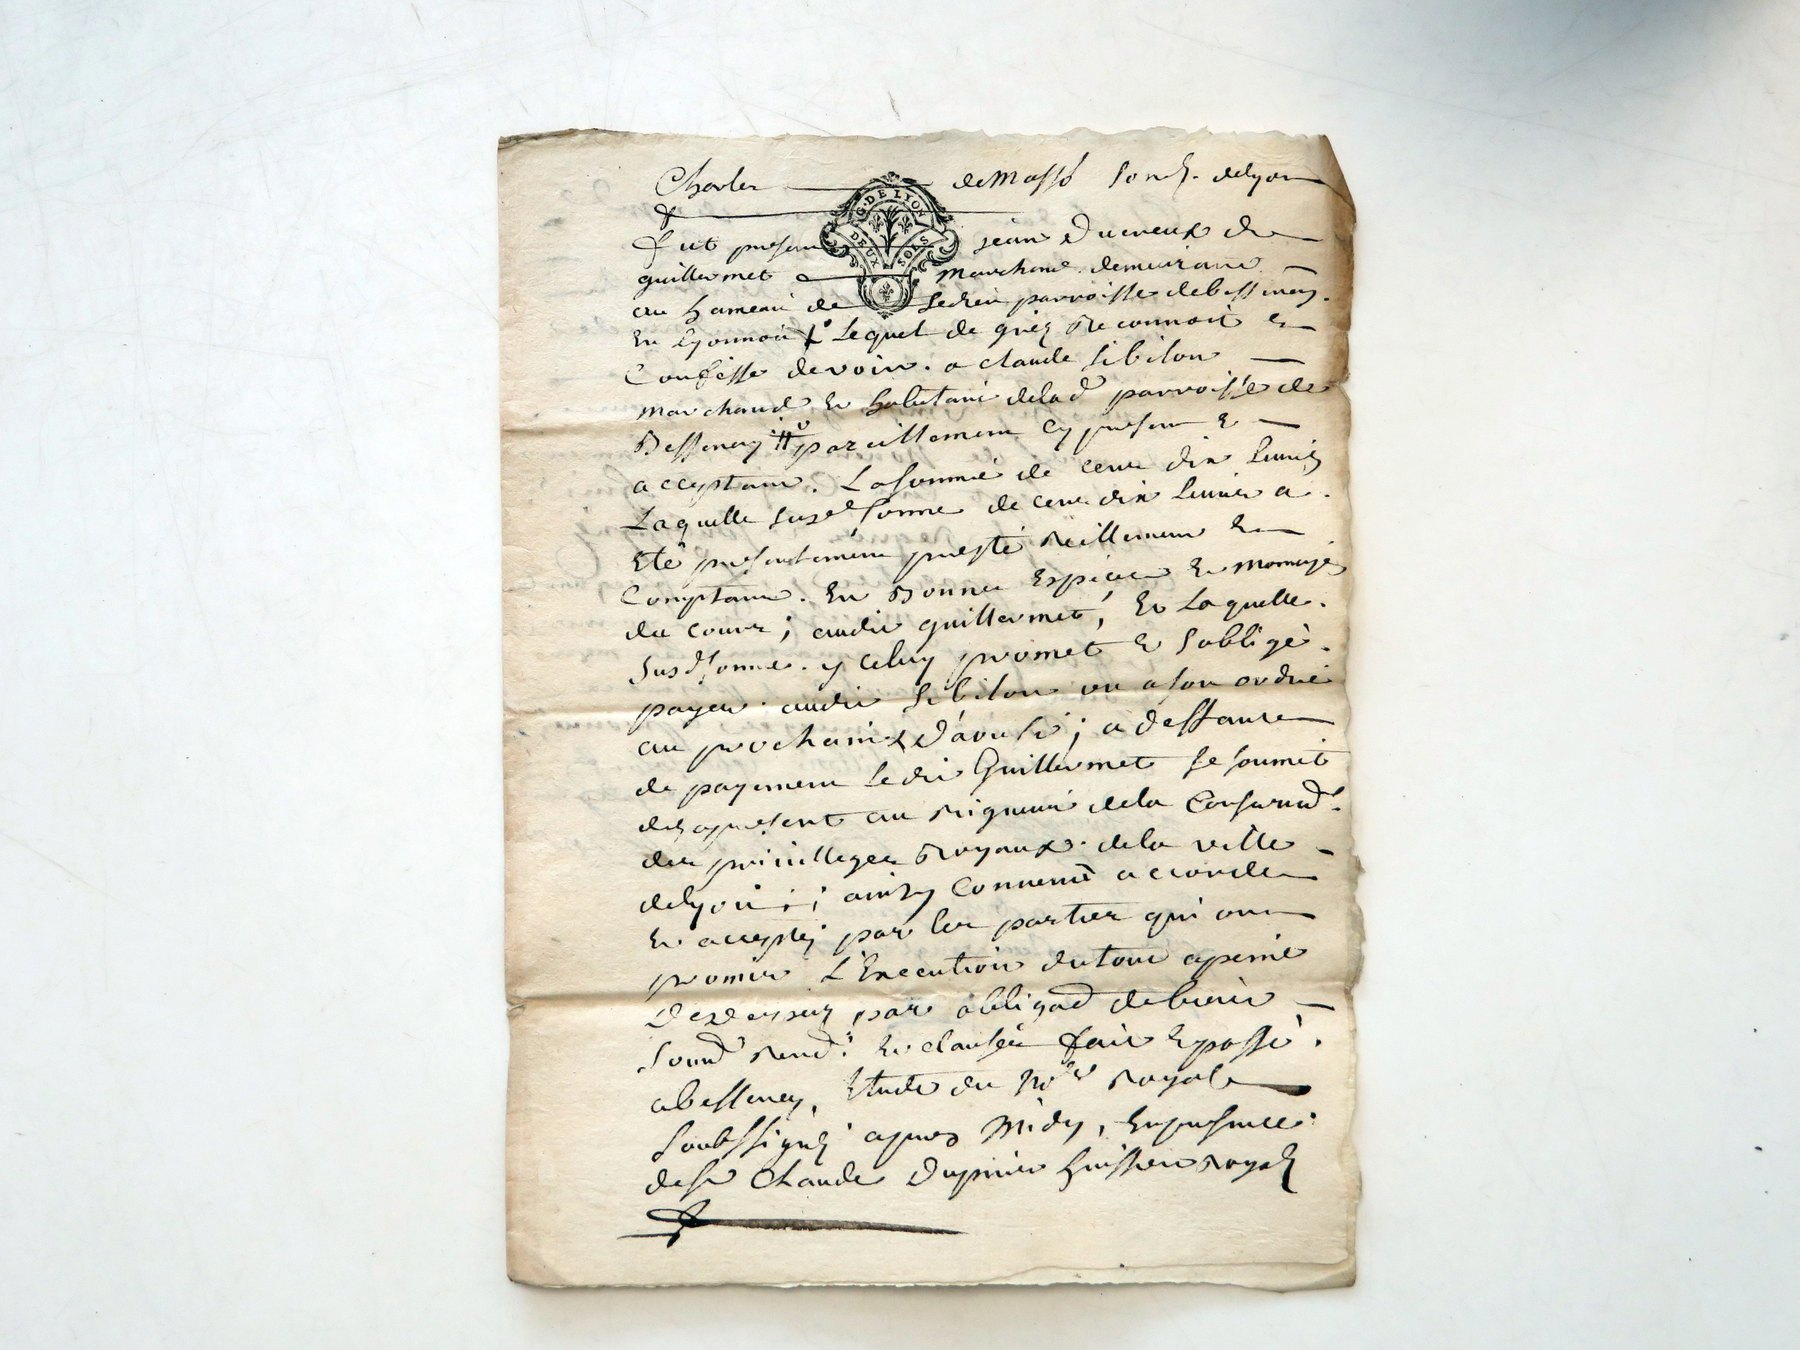 Charles de Masso senl. delyon
G. DE LYON
DEUX SOLS
fut present jean Ducreux dit
guillermet marchand demeurant
au hameau de parroisse debessenay
en lyonnois Lequel de gréz reconnoit et
Confesse devoir a claude sibilon
marchand et habitant delad parroisse de
Bessenay pareillement cy present et
acceptant. La somme de cent dix Liures
Laquelle susd. somme de cent dix Liures a
Eté presentement presté reellement et
Comptant. En Bonnes Especes et monnoye
du cours; audit guillermet, Et Laquelle
susd somme y celuy promet et soblige
payer audit sibilon ou a son ordre
au prochain d'aoust; a deffaut
de payement ledit Guillermet se soumet
dezapresent au rigueurs dela Conservaõn
des priuilleges royaux dela ville
delyon; ainsy Conuenu accordé
Et accepté par les parties qui ont
promis L'Execution dutout apeine
Dexdespens par obligaõn debiens
soum renõn Et clauses fait Et passé
abessenay, Etude du nore royal
soubssigné apres Midy, En presence
de sr Claude Dupuis huissier royal